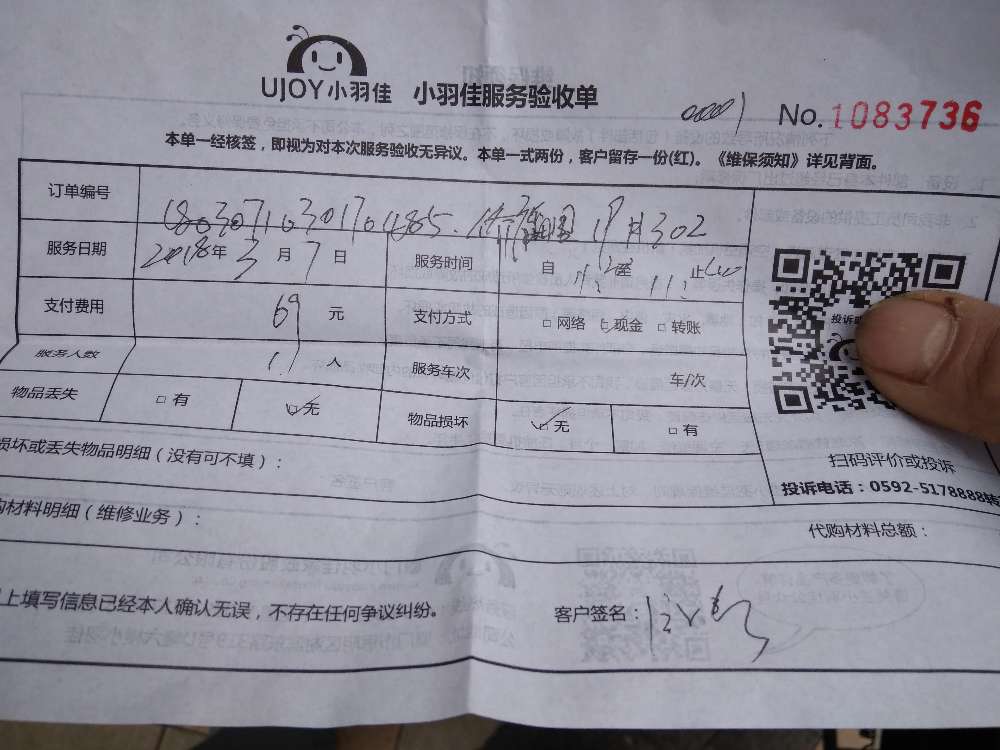 UJOY小羽佳 小羽佳服务验收单
00001 No.1083736
本单一经核签，即视为对本次服务验收无异议。本单一式两份，客户留存一份(红)。《维保须知》详见背面。
订单编号 302
服务日期 2018年 3月 7日 服务时间 自 至 止
支付费用 69 元 支付方式 □网络 ☑现金 □转账
服务人数 人 服务车次 车/次
物品丢失 □有 ☑无 物品损坏 ☑无 □有
投诉
扫码评价或投诉
投诉电话：0592-5178888转
损坏或丢失物品明细（没有可不填）：
购材料明细（维修业务）：
代购材料总额：
上填写信息已经本人确认无误，不存在任何争议纠纷。
客户签名：